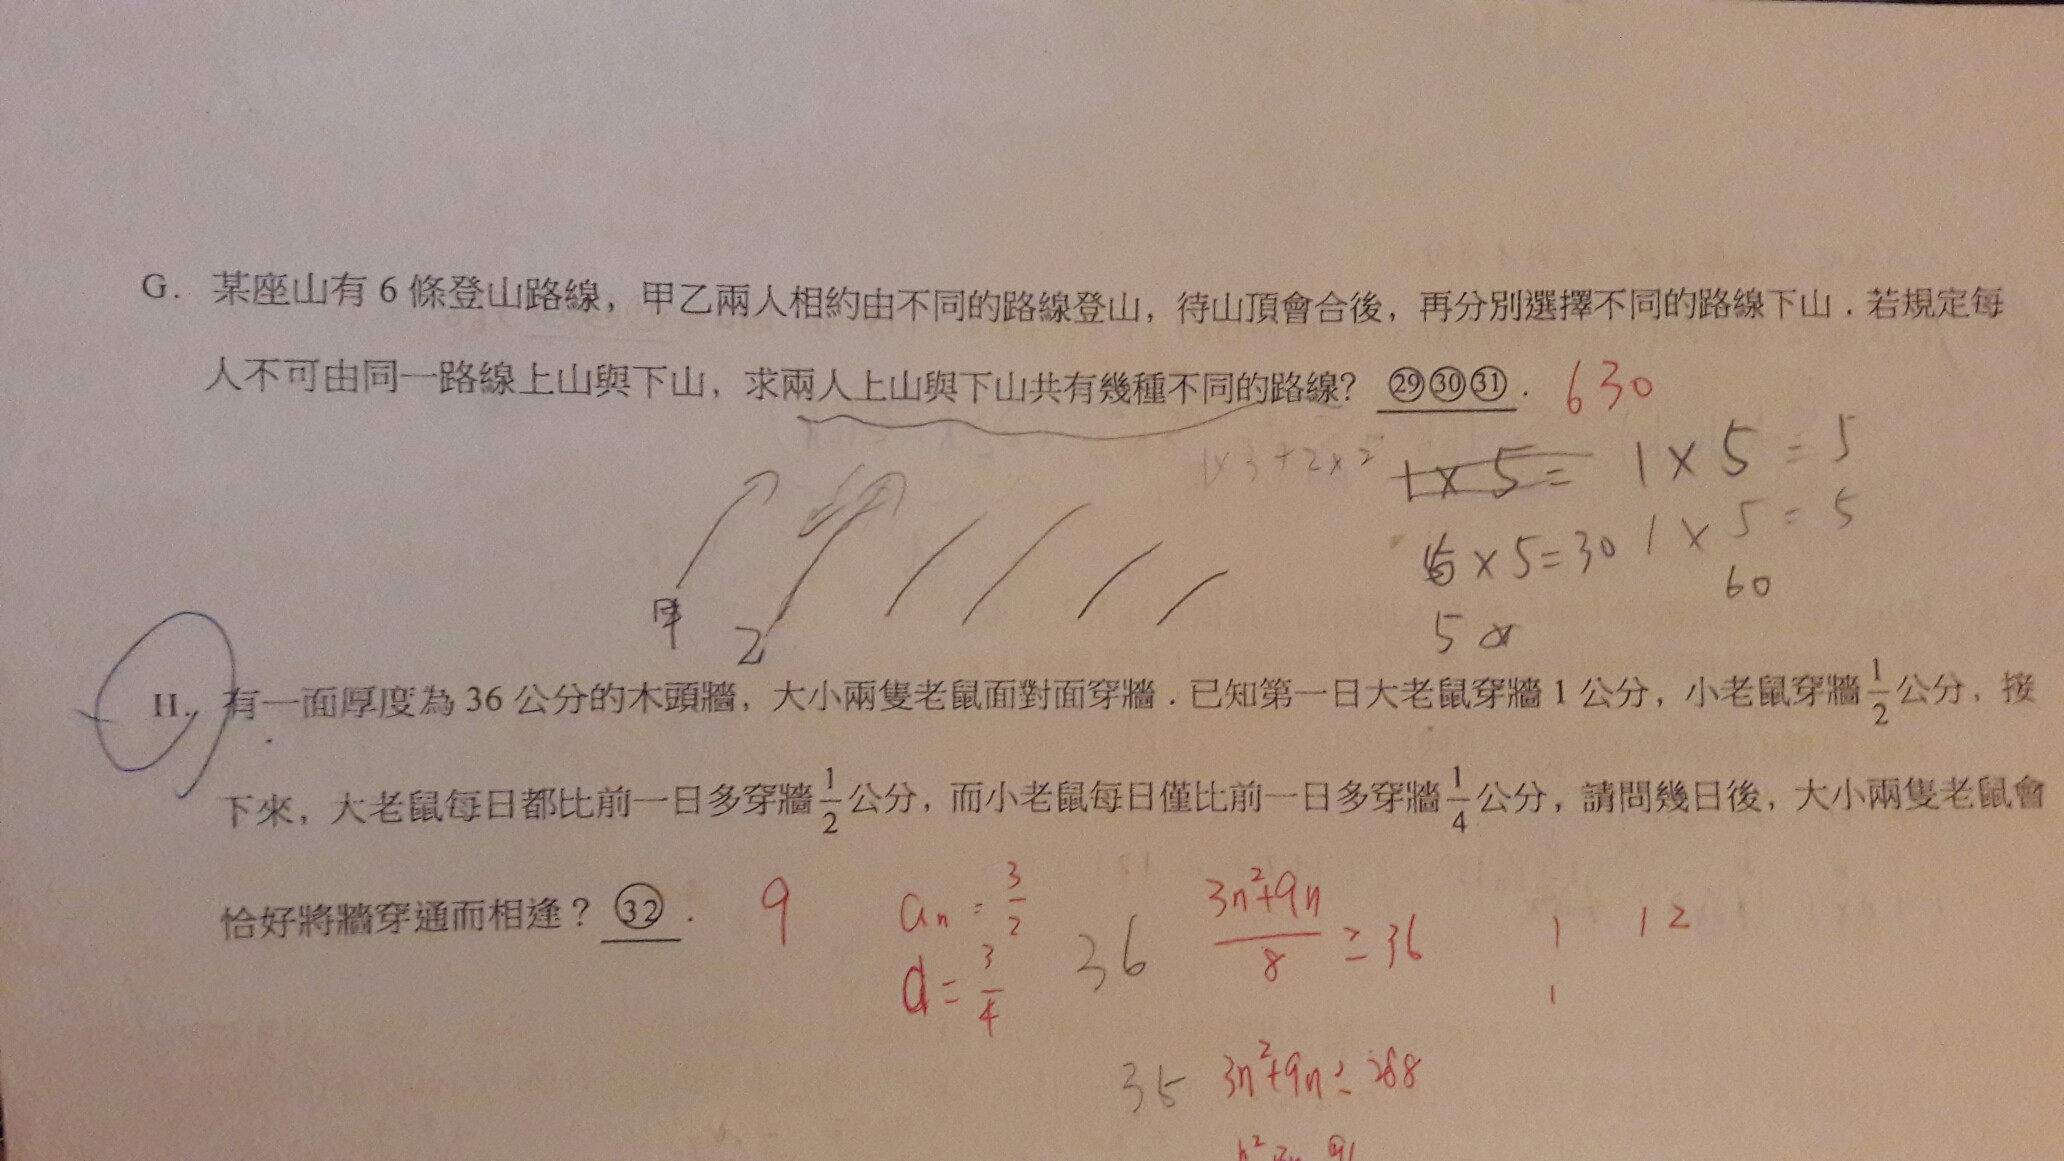 G. 某座山有 6 條登山路線，甲乙兩人相約由不同的路線登山，待山頂會合後，再分別選擇不同的路線下山．若規定每
人不可由同一路線上山與下山，求兩人上山與下山共有幾種不同的路線？ ㉙㉚㉛ . 630
1×3+2×2 1×5= 1×5=5
6×5=30 1×5=5
60
甲 乙 5
H. 有一面厚度為 36 公分的木頭牆，大小兩隻老鼠面對面穿牆．已知第一日大老鼠穿牆 1 公分，小老鼠穿牆 1/2 公分，接
下來，大老鼠每日都比前一日多穿牆 1/2 公分，而小老鼠每日僅比前一日多穿牆 1/4 公分，請問幾日後，大小兩隻老鼠會
恰好將牆穿通而相逢？ ㉜ . 9 aₙ = 3/2 36 (3n²+9n)/8 ≥ 36 12
d = 3/4
35 3n²+9n ≥ 288